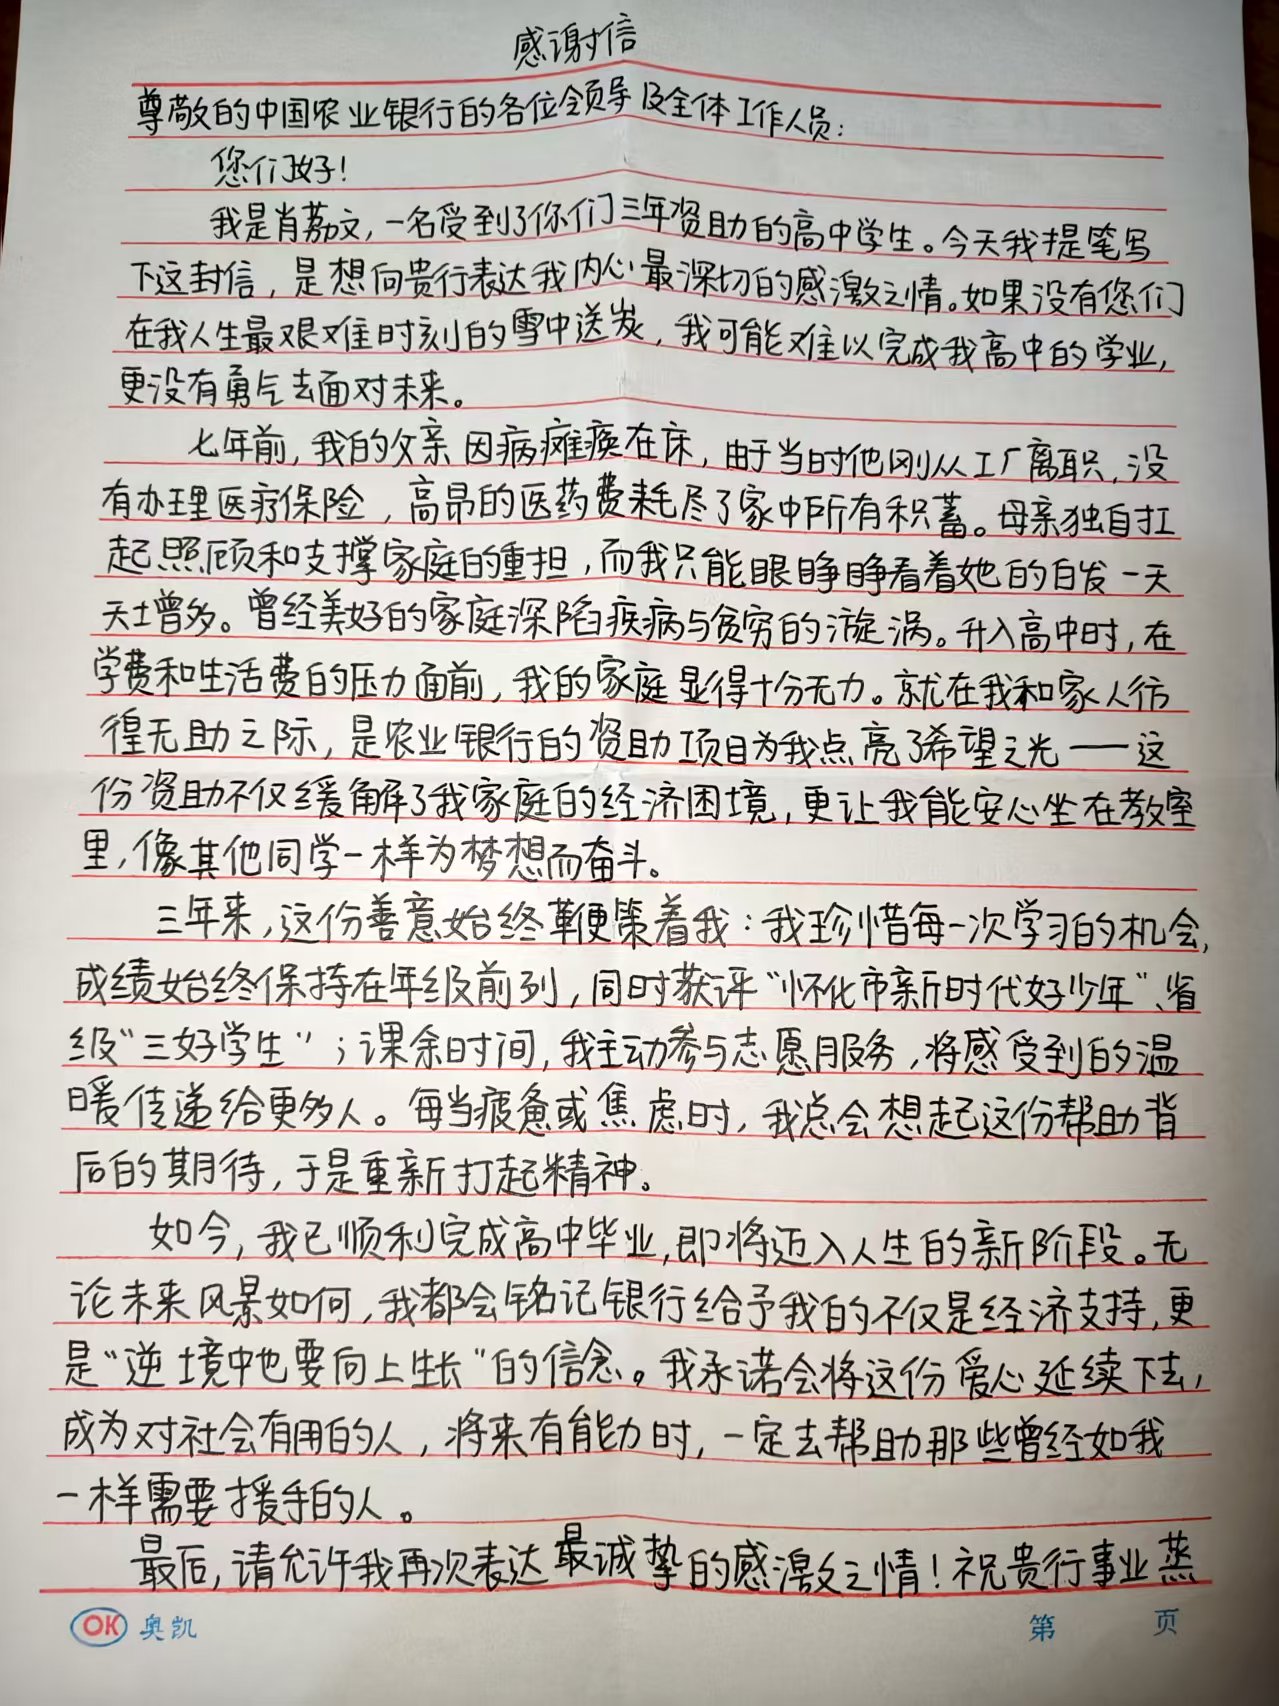 感谢信
尊敬的中国农业银行的各位领导及全体工作人员：
您们好！
我是肖荔文，一名受到了你们三年资助的高中学生。今天我提笔写
下这封信，是想向贵行表达我内心最深切的感激之情。如果没有您们
在我人生最艰难时刻的雪中送炭，我可能难以完成我高中的学业，
更没有勇气去面对未来。
七年前，我的父亲因病瘫痪在床，由于当时他刚从工厂离职，没
有办理医疗保险，高昂的医药费耗尽了家中所有积蓄。母亲独自扛
起照顾和支撑家庭的重担，而我只能眼睁睁看着她的白发一天
天增多。曾经美好的家庭深陷疾病与贫穷的漩涡。升入高中时，在
学费和生活费的压力面前，我的家庭显得十分无力。就在我和家人彷
徨无助之际，是农业银行的资助项目为我点亮了希望之光——这
份资助不仅缓解了我家庭的经济困境，更让我能安心坐在教室
里，像其他同学一样为梦想而奋斗。
三年来，这份善意始终鞭策着我：我珍惜每一次学习的机会，
成绩始终保持在年级前列，同时获评“怀化市新时代好少年”、省
级“三好学生”；课余时间，我主动参与志愿服务，将感受到的温
暖传递给更多人。每当疲惫或焦虑时，我总会想起这份帮助背
后的期待，于是重新打起精神。
如今，我已顺利完成高中毕业，即将迈入人生的新阶段。无
论未来风景如何，我都会铭记银行给予我的不仅是经济支持，更
是“逆境中也要向上生长”的信念。我承诺会将这份爱心延续下去，
成为对社会有用的人，将来有能力时，一定去帮助那些曾经如我
一样需要援手的人。
最后，请允许我再次表达最诚挚的感激之情！祝贵行事业蒸
OK 奥凯 第 页